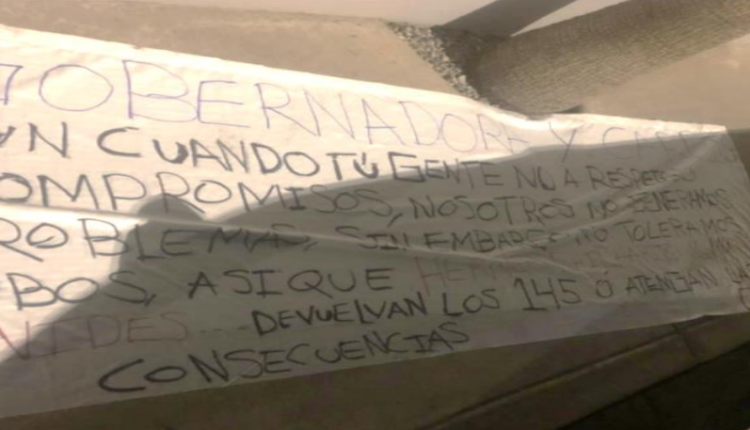 OBERNADORA Y
UN CUANDO TÚ GENTE NO A RESPETADO
OMPROMISOS, NOSOTROS NO GENERAMOS
ROBLEMAS, SIN EMBARGO NO TOLERAMOS
BOS, ASI QUE
DEVUELVAN LOS 145 Ó ATENJAN LAS
CONSECUENCIAS